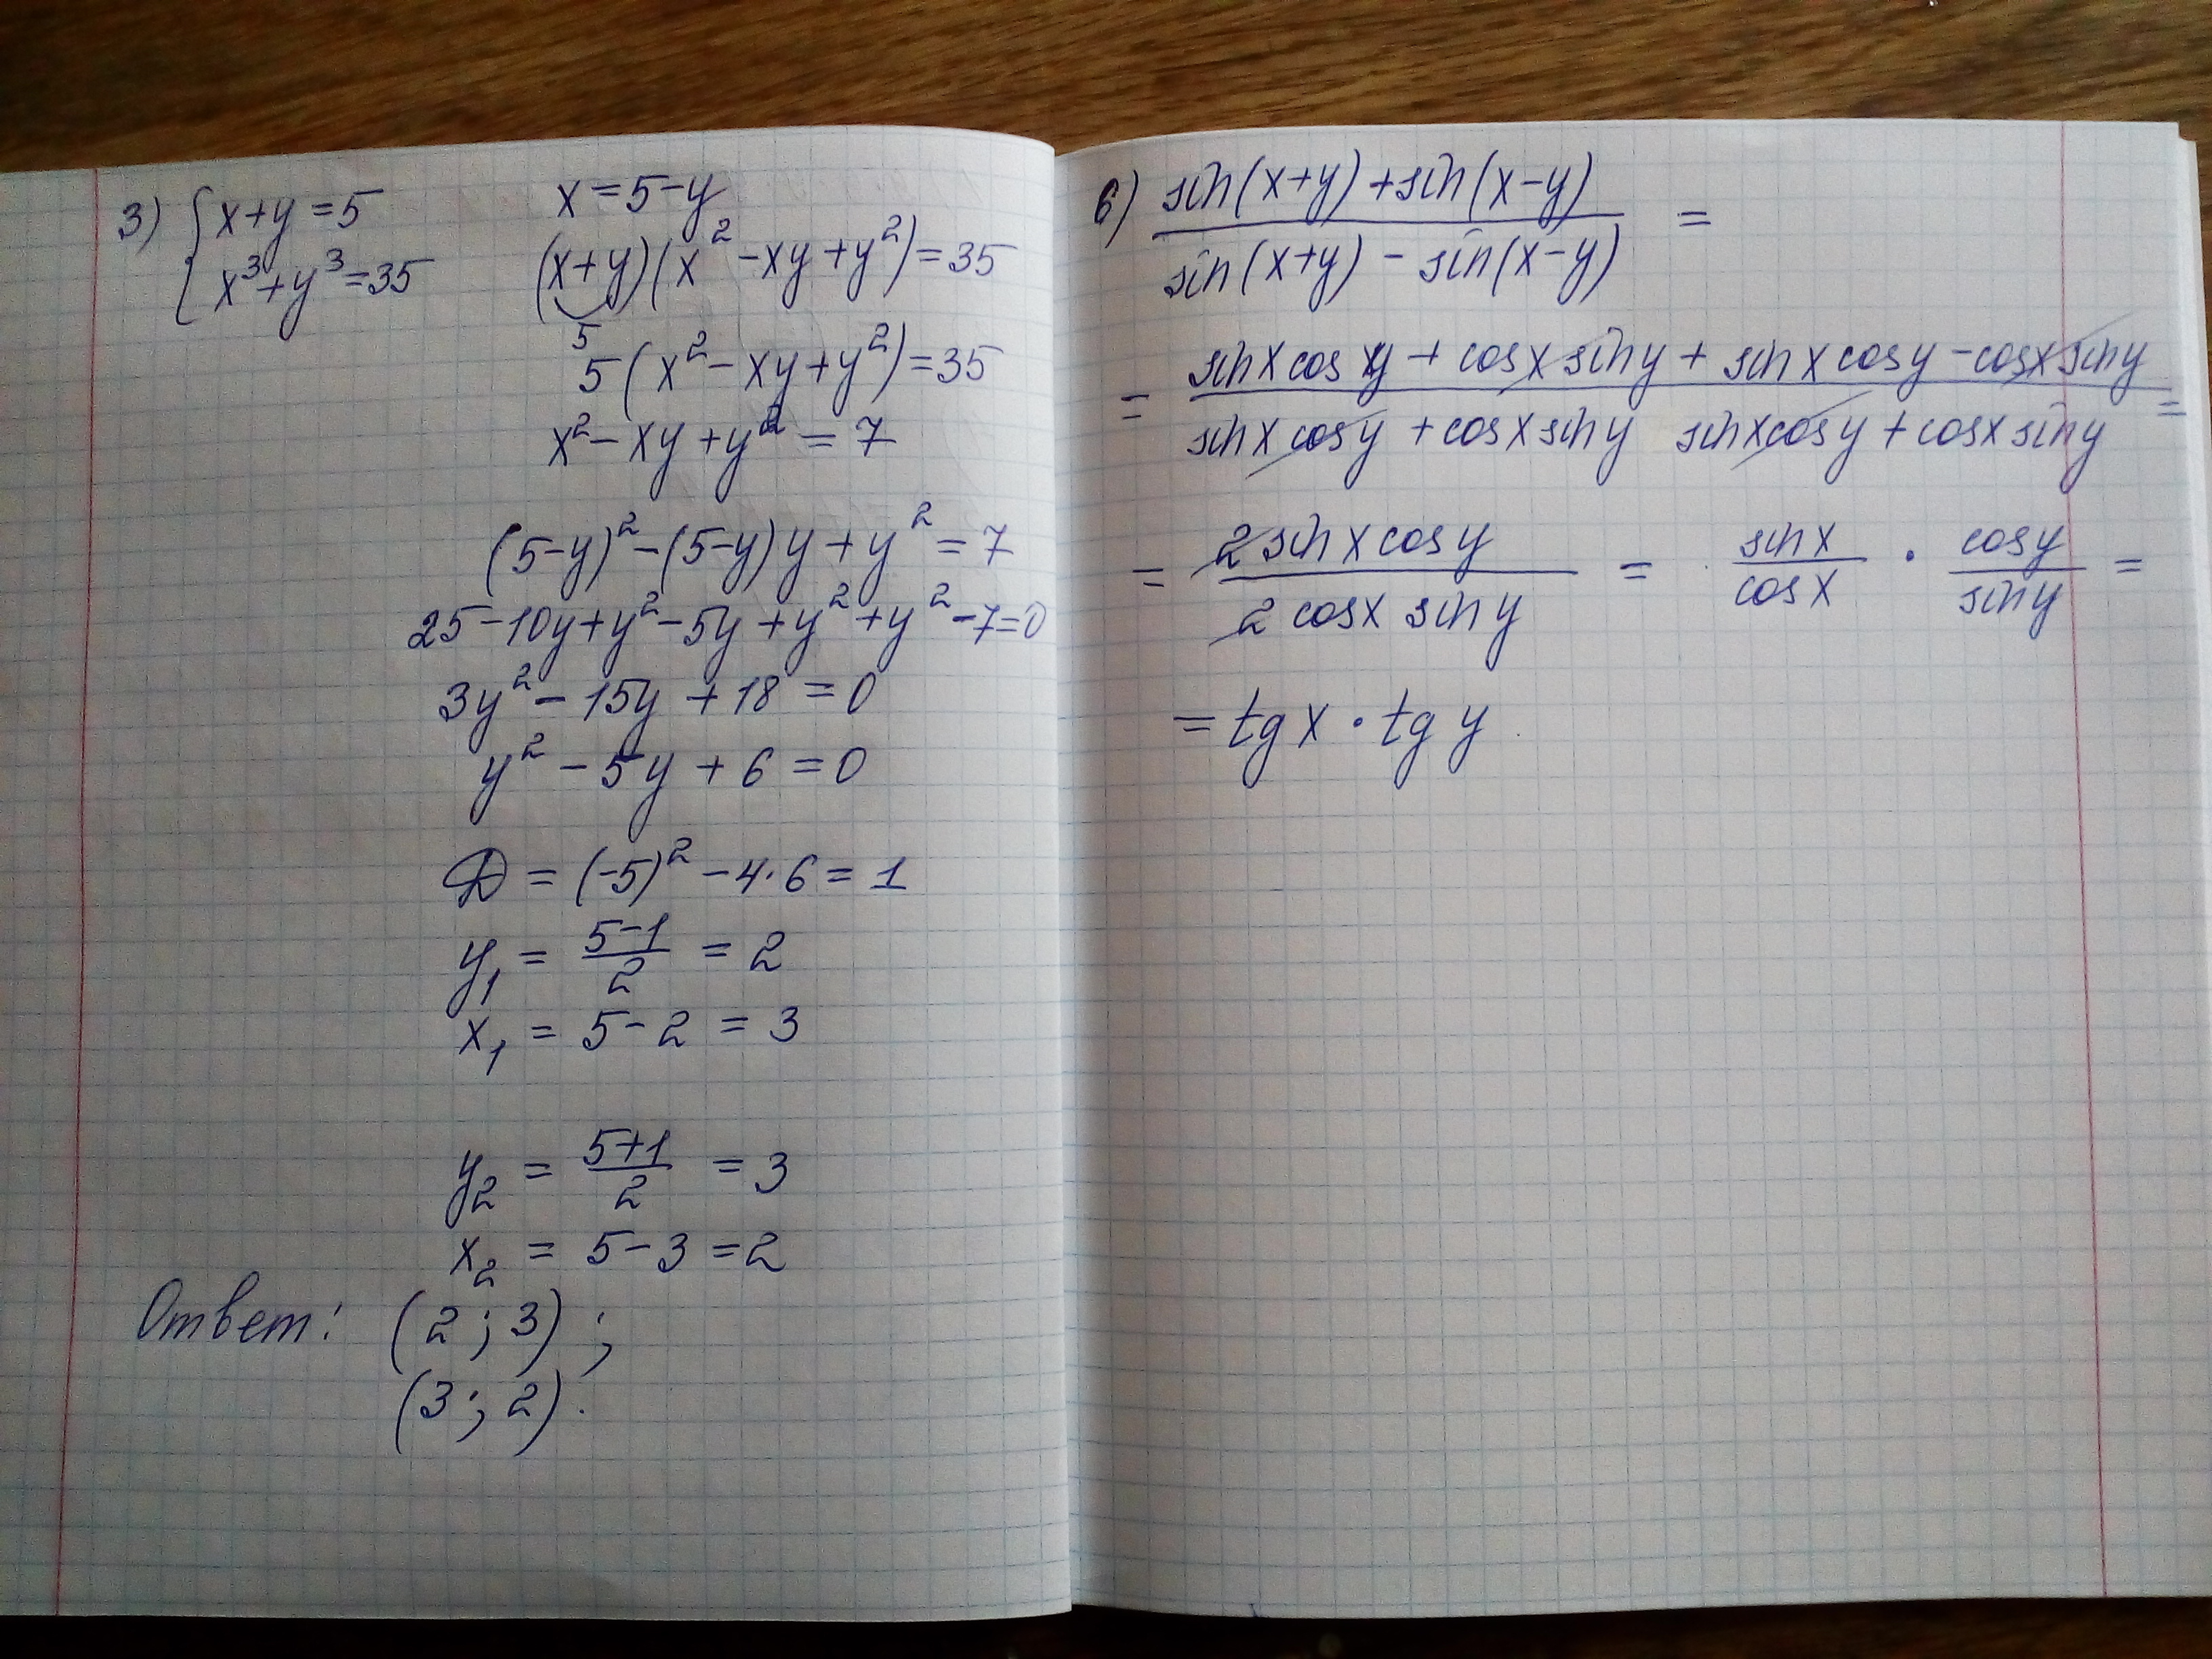 3) { x+y=5
x³+y³=35
x=5-y
(x+y)(x²-xy+y²)=35
5
5(x²-xy+y²)=35
x²-xy+y²=7
(5-y)²-(5-y)y+y²=7
25-10y+y²-5y+y²+y²-7=0
3y²-15y+18=0
y²-5y+6=0
D=(-5)²-4·6=1
y₁ = (5-1)/2 = 2
x₁ = 5-2 = 3
y₂ = (5+1)/2 = 3
x₂ = 5-3 = 2
Ответ: (2; 3);
(3; 2).
6) (sin(x+y)+sin(x-y))/(sin(x+y)-sin(x-y)) =
= (sin x cos y + cos x sin y + sin x cos y - cos x sin y)/(sin x cos y + cos x sin y sin x cos y + cos x sin y) =
= (2 sin x cos y)/(2 cos x sin y) = (sin x)/(cos x) · (cos y)/(sin y) =
= tg x · tg y